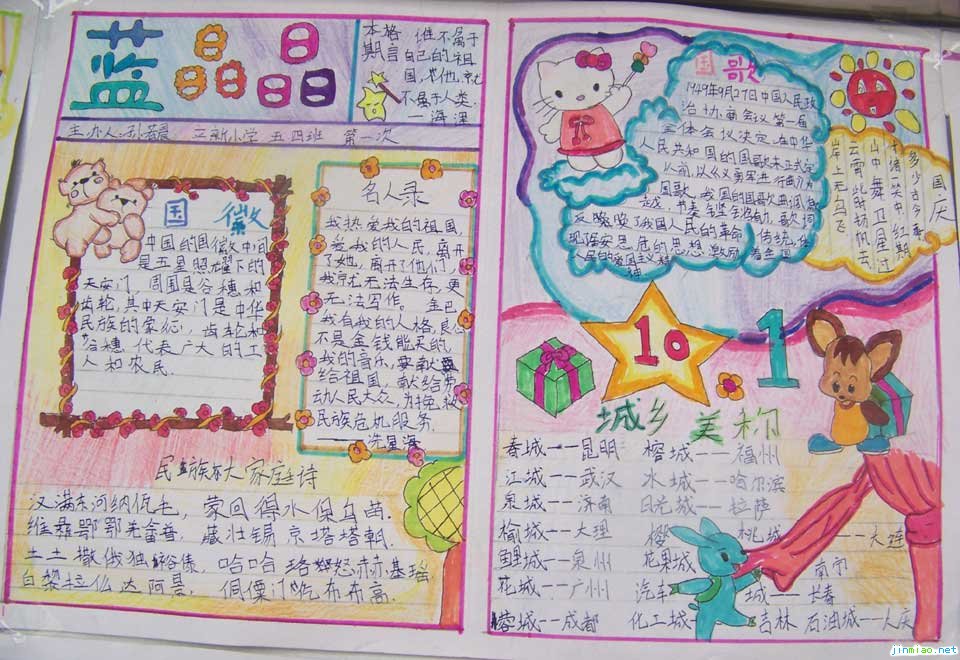 蓝晶晶
本格 谁不属于
期言 自己的祖
国,那他就
不属于人类。
主办人:孙 立新小学 五四班 第一次
国徽
中国的国徽中间
是五星照耀下的
天安门,周围是谷穗和
齿轮,其中天安门是中华
民族的象征,齿轮和
谷穗代表广大的工
人和农民.
名人录
我热爱我的祖国
爱我的人民,离开
了她,离开了他们,
我就无法生存,更
无法写作。 — 金巴
我有我的人格,良心
不是金钱能买的。
我的音乐,要献
给祖国,献给劳
动人民大众,为挽救
民族危机服务。
——冼星海
民族大家庭诗
汉满东河纳佤毛,蒙回得水保乌苗.
维彝鄂鄂羌畲普,藏壮锡京塔塔朝.
土土撒俄独裕傣,哈哈珞怒赫基瑶
白黎拉仫达阿景,侗傈门仡布布高.
国歌
1949年9月27日中国人民政
治协商会议第一届
全体会议决定,在中华
人民共和国的国歌未正式定
以前,以义勇军进行曲为
国歌,我国的国歌曲调
反映了我国人民的革命传统,体
现居安思危的思想,激励着全国
人民的爱国主义精
神
国庆
多少古今事
才绪笑中红期
山中舞卫星过
云霄此时扬帆去
岸上无乌飞
10.1
城乡美称
春城——昆明 榕城——福州
江城——武汉 冰城——哈尔滨
泉城——济南 日光城——拉萨
榆城——大理 樱桃城——大连
鲤城——泉州 花果城 南郊
花城——广州 汽车城——长春
蓉城——成都 化工城——吉林 石油城——大庆
jinmiao.net